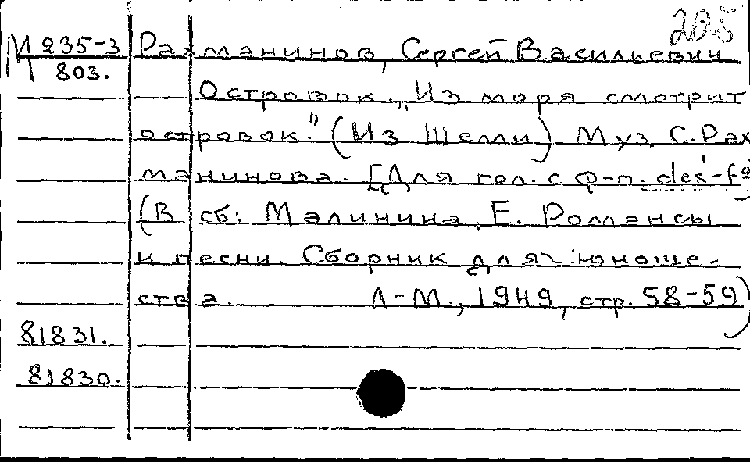 205
М 235-3 Рахманинов, Сергей Васильевич
803.
Островок. „Из моря смотрит
островок." (Из Шелли). Муз. С. Рах
манинова. [Для гол. с ф-п. des'-f²]
(В сб: Малинина, Е. Романсы
и песни. Сборник для юноше-
ства. Л-М., 1949, стр. 58-59)
81831.
81830.